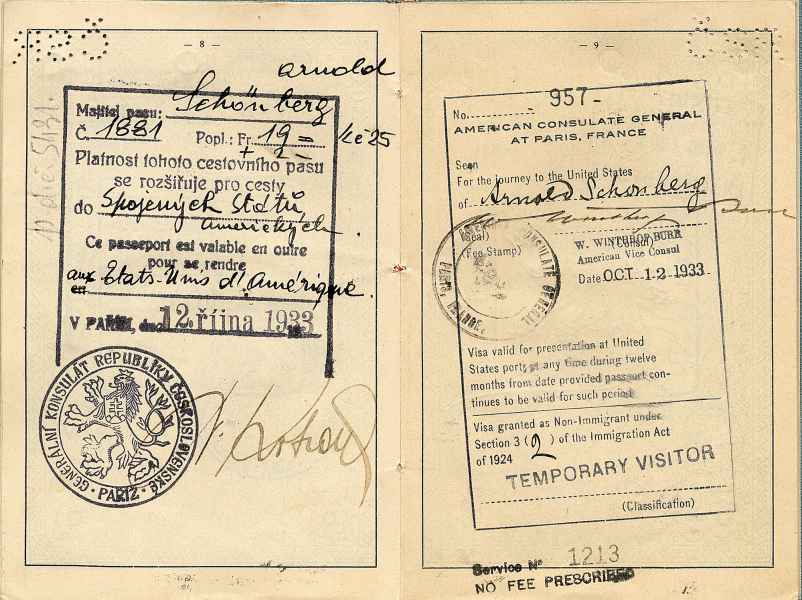 – 8 –
Arnold
Majitel pasu: Schönberg
Č. 1881 Popl.: Fr. 19 = Kč 25
+ 2 –
Platnost tohoto cestovního pasu
se rozšiřuje pro cesty
do Spojených Států
Amerických.
Ce passeport est valable en outre
pour se rendre
aux Etats-Unis d'Amérique.
en
V PAŘÍŽI, dne 12. října 1933
GENERÁLNÍ KONSULÁT REPUBLIKY ČESKOSLOVENSKÉ
· PAŘÍŽ ·
– 9 –
No. 957-
AMERICAN CONSULATE GENERAL
AT PARIS, FRANCE
Seen
For the journey to the United States
of Arnold Schönberg
(Seal)
(Fee Stamp)
W. WINTHROP BURR
(Consul)
American Vice Consul
Date OCT 12 1933
CONSULATE GENERAL
PARIS, FRANCE.
Visa valid for presentation at United
States ports at any time during twelve
months from date provided passport con-
tinues to be valid for such period
Visa granted as Non-Immigrant under
Section 3 (2) of the Immigration Act
of 1924
TEMPORARY VISITOR
(Classification)
Service Nº 1213
NO FEE PRESCRIBED